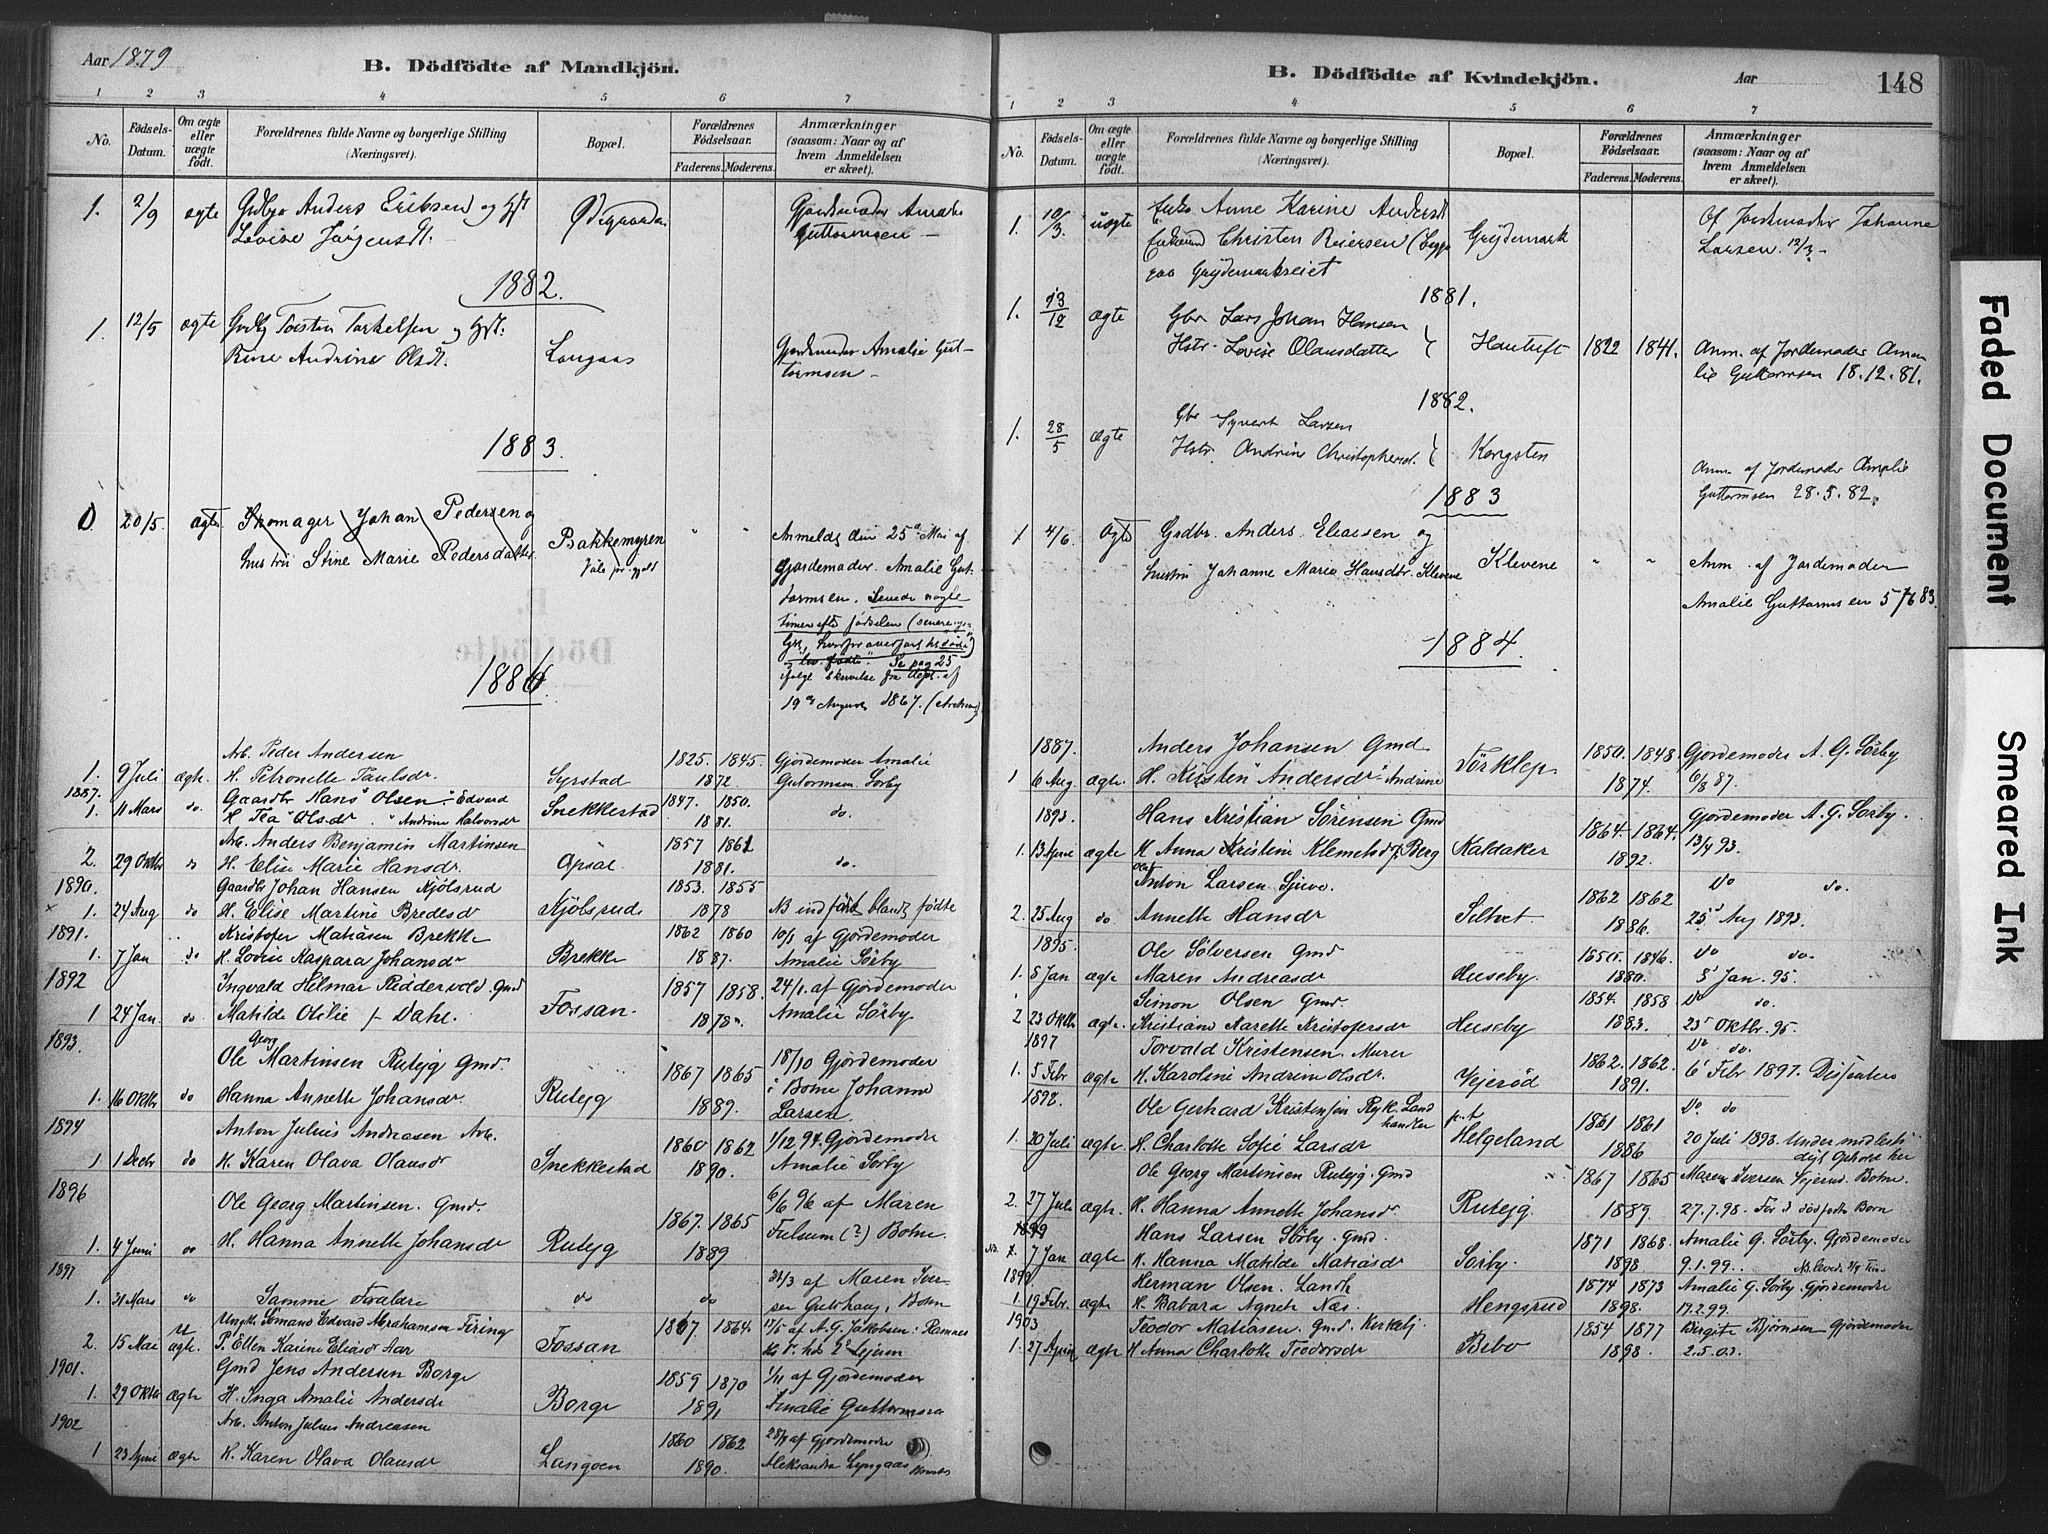 Aar 1879
B. Dödfödte af Mandkjön.
1 2 3 4 5 6 7
No.
Födsels-Datum.
Om ægte eller uægte födt.
Forældrenes fulde Navne og borgerlige Stilling (Næringsvei).
Bopæl.
Forældrenes Födselsaar.
Faderens. Moderens.
Anmærkninger (saasom: Naar og af hvem Anmeldelsen er skeet).
1. 2/9 ægte Anders Eriksen og
Lovise Jörgensdt. Guttormsen
1882.
1. 12/5 ægte Torsten Torkelsen og
Andrine Olsdt. Langaas Gjordemoder Amalie Gut-
tormsen
1883.
20/5. ægte Skomager Johan Pedersen og
Hustru Stine Marie Pedersdatter Bakkemyren
Anmeldt den 25de Mai af
Gjordemoder Amalie Gut-
tormsen. Levede nogle
timer efter fødselen (senere
Se pag 25
ifølge Skrivelse fra Dept. af
19de August 1867.
1886
Arb. Peder Andersen 1825. 1845. Gjordemoder Amalie
1. 9 Juli ægte H. Petronelle Paulsdr. Syrstad 1872 Guttormsen Sörby
1887. Gaardbr Hans Olsen Edvard 1847. 1850.
1. 11 Mars do H. Tea Olsdr Andrine Halvorsdr Snekkestad 1881. do.
Arb. Anders Benjamin Martinsen 1857 1861
2. 29 Oktbr H. Elise Marie Hansdr. Opsal 1881. do.
1890. Gaardbr Johan Hansen Kjölsrud 1853. 1855
1. 24 Aug do H. Elise Martine Bredesd Kjölsrud 1878 NB indført blandt fødte
1891. Kristofer Matiasen Brekke 1862 1860 10/1 af Gjordemoder
1. 7 Jan do H. Lovise Kaspara Johansdr Brekke 1887. Amalie Sörby
1892 Ingvald Helmar Riddervold Gmd 1857 1858. 24/1. af Gjordemoder
1 24 Jan. do Matilde Otilie f. Dahl. Fossan. 1878. Amalie Sörby.
1893. Ole Georg Martinsen Rutejg Gmd. 1867 1865 18/10 af Gjordemoder
i Botne Johanne
1. 16 Oktbr do Hanna Annette Johansdr. Rutejg 1889. Larsen.
1894 Anton Julius Andreasen Arb. 1860 1862 1/12 94. Gjordemoder
1 1 Decbr do H. Karen Olava Olausdr Snekkestad 1890. Amalie Sörby
1896 Ole Georg Martinsen. Gmd. 1867. 1865 6/6 96 af Maren
1. 4 Juni do H. Hanna Annette Johansdr Rutejg 1889 Fulsum (?) Botne.
1897 31/3 af Maren Iver-
1. 31 Mars do Samme Forældre do do sen Gulhaug, Botne
Ungk. Edvard Abrahamsen Firing 1867 1864. 17/5 af A. G. Jakobsen:
2. 15 Mai uægte P. Ellen Karine Eliasdr Aar Fossan
1901. Gmd Jens Andersen Borge 1859 1870 1/11 af Gjordemoder
1. 29 Oktbr ægte H. Inga Amalie Andersdr Borge 1891 Amalie Guttormsen
1902 Arb. Anton Julius Andreasen 1860 1862 28/4 af Gjordemoder
1 23 April ægte H. Karen Olava Olausdr Langoen 1890. Aleksandra Lyngaas

B. Dödfödte af Kvindekjön.
Aar
148
1 2 3 4 5 6 7
No.
Födsels-Datum.
Om ægte eller uægte födt.
Forældrenes fulde Navne og borgerlige Stilling (Næringsvei).
Bopæl.
Forældrenes Födselsaar.
Faderens. Moderens.
Anmærkninger (saasom: Naar og af hvem Anmeldelsen er skeet).
1. 10/3. uægte Enke Anne Karine Andersdt Af Jordemoder Johanne
Enkemd Christen Reiersen Grydemark Larsen. 12/3
paa Grydemarkseiet
1881.
1. 13/12 ægte Gbr Lars Johan Hansen
Hstr. Lovise Olausdatter Hautuft 1822 1841. Anm. af Jordemoder Ama-
lie Guttormsen 18.12.81.
1882.
Gbr Syvert Larsen
1. 28/5 ægte Hstr. Andrine Christophersd. Kongsten
Anm. af Jordemoder Amalie
Guttormsen 28.5.82.
1883
1 4/6. ægte Grdbr. Anders Eliasen og
Hustru Johanne Marie Hansdtr. Klevene Klevene " " Anm. af Jordemoder
Amalie Guttormsen 5/6 83.
1884.
1887. Anders Johansen Gmd 1850. 1848 Gjordemoder A. G. Sörby
1 6 Aug ægte. H. Kristen Andersdr Andrine Törklep 1874. 6/8 87.
1893. Hans Kristian Sörensen Gmd 1864. 1864. Gjordemoder A. G. Sörby.
1. 13 April ægte H. Anna Kristine Klemetsd f. Berg Kaldaker 1892. 13/4 93.
Anton Larsen 1862 1862 Do do.
2. 25 Aug do. Annette Hansdr Seltvet 1886. 25d Aug 1893.
1895. Ole Sölversen Gmd 1850. 1846. Do do.
1. 8 Jan ægte Maren Andreasdr Huseby. 1880. 8 Jan. 95.
Simon Olsen Gmd. 1854. 1858 Do do.
2 23 Oktbr ægte. Kristiane Narette Kristofersdr Huseby 1883. 23 Oktbr. 95.
1897 Torvald Kristensen. Murer 1862. 1862. Do. do.
1. 5 Febr ægte H. Karoline Andrine Olsdr. Vejeröd 1891. 6 Febr 1897.
1898. Ole Gerhard Kristensen Landhandler p.t. 1861 1861 Do. do
1. 20 Juli ægte H. Charlotte Sofie Larsdr Helgeland 1886 20 Juli 1898. Under midlerti-
digt Ophold her
Ole Georg Martinsen Rutejg. Gmd 1867 1865 Maren Iversen Vejerud. Botne.
2. 27 Juli ægte. H. Hanna Annette Johansdr Rutejg. 1889. 27.7.98. Før 3 dödfødte Børn
1899 Hans Larsen Sörby. Gmd. 1871 1868. Amalie G. Sörby. Gjordemoder
7 Jan ægte H. Hanna Matilde Matiasdr Sörby. 1898 9.1.99.
1899 Herman Olsen. Landh 1874 1873 Amalie G. Sörby. Gjordemoder
1. 19 Febr. ægte H. Babara Agnete Næs. Hengsrud 1898. 19.2.99.
1903 Teodor Matiasen. Gmd. Kirkebj. 1854 1877 Birgite Bjørnsen Gjordemoder
1. 27 April ægte H Anna Charlotte Teodorsdr Bibo 1898. 2.5.03.
Faded Document
Smeared Ink